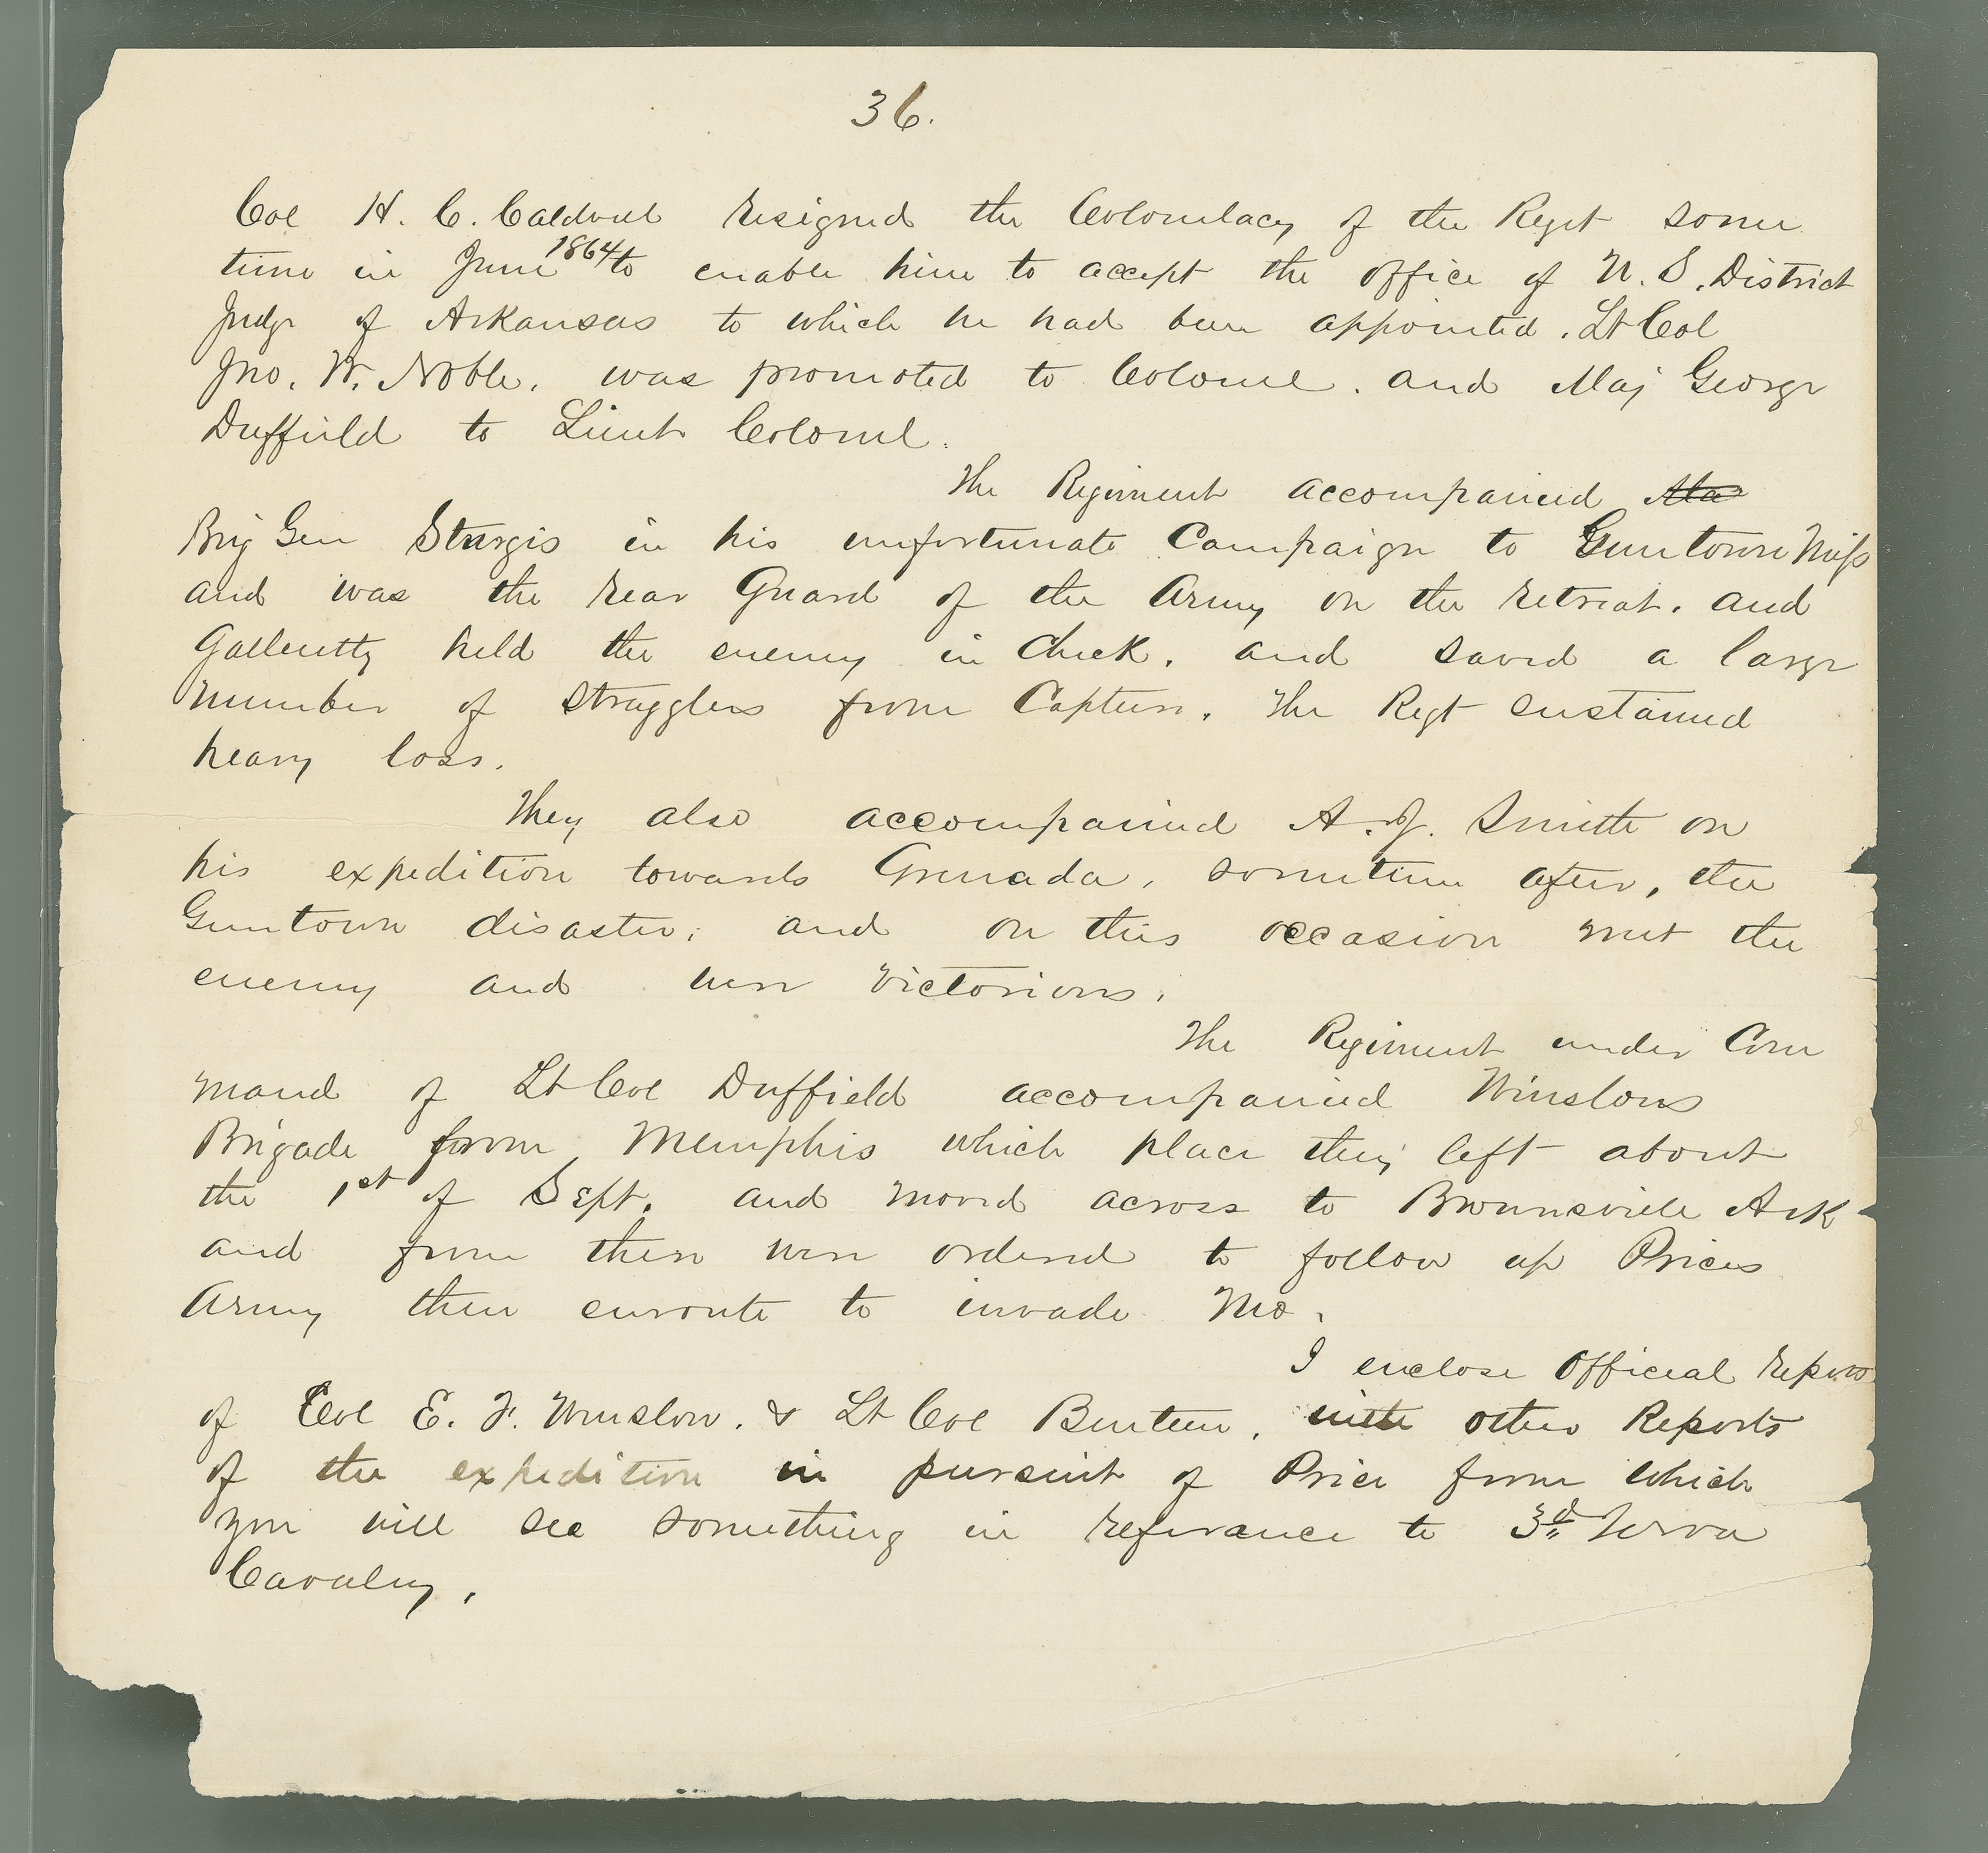 36.
Col H. C. Caldwell resigned the Colonelacy of the Regt some
time in June 1864 to enable him to accept the office of U. S. District
Judge of Arkansas to which he had been appointed. Lt Col
Jno. W. Noble. was promoted to Colonel. and Maj George
Duffield to Lieut Colonel.
The Regiment accompanied Ma
Brig Gen Sturgis in his unfortunate Campaign to Guntown Miss
and was the rear Guard of the Army on the retreat. and
Gallently held the enemy in Check. and saved a large
number of stragglers from Capture. The Regt sustained
heavy loss.
They also accompanied A. J. Smith on
his expedition towards Grenada, sometime after, the
Guntown disaster, and on this occasion met the
enemy and were victorious.
The Regiment under Com
mand of Lt Col Duffield accompanied Winslows
Brigade from Memphis which place they left about
the 1st of Sept. and moved across to Brownsville Ark
and from there were ordered to follow up Prices
Army then enroute to invade Mo.
I enclose Official reports
of Col E. F. Winslow. & Lt Col Benteen, with other Reports
of the expedition in pursuit of Price from which
you will see something in referance to 3d Iowa
Cavalry.